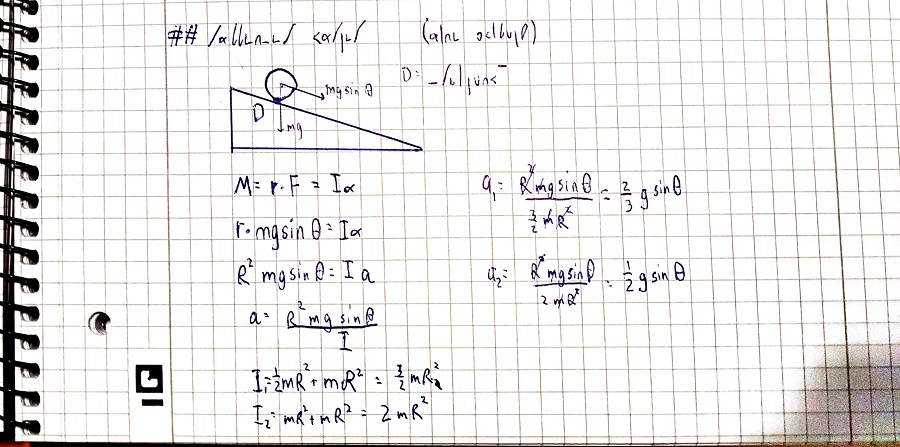 ##
D:
mg sin θ
D
mg
M = r · F = Iα
r · mg sin θ = Iα
R² mg sin θ = I a
a = R² mg sin θ / I
I₁ = ½mR² + mR² = 3/2 mR²
I₂ = mR² + mR² = 2 mR²
a₁ = R² mg sin θ / 3/2 mR² = 2/3 g sin θ
a₂ = R² mg sin θ / 2 mR² = 1/2 g sin θ